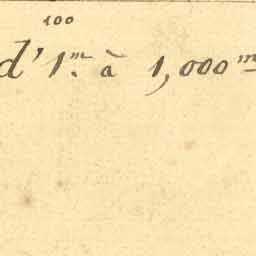 100
d'1.m à 1,000m